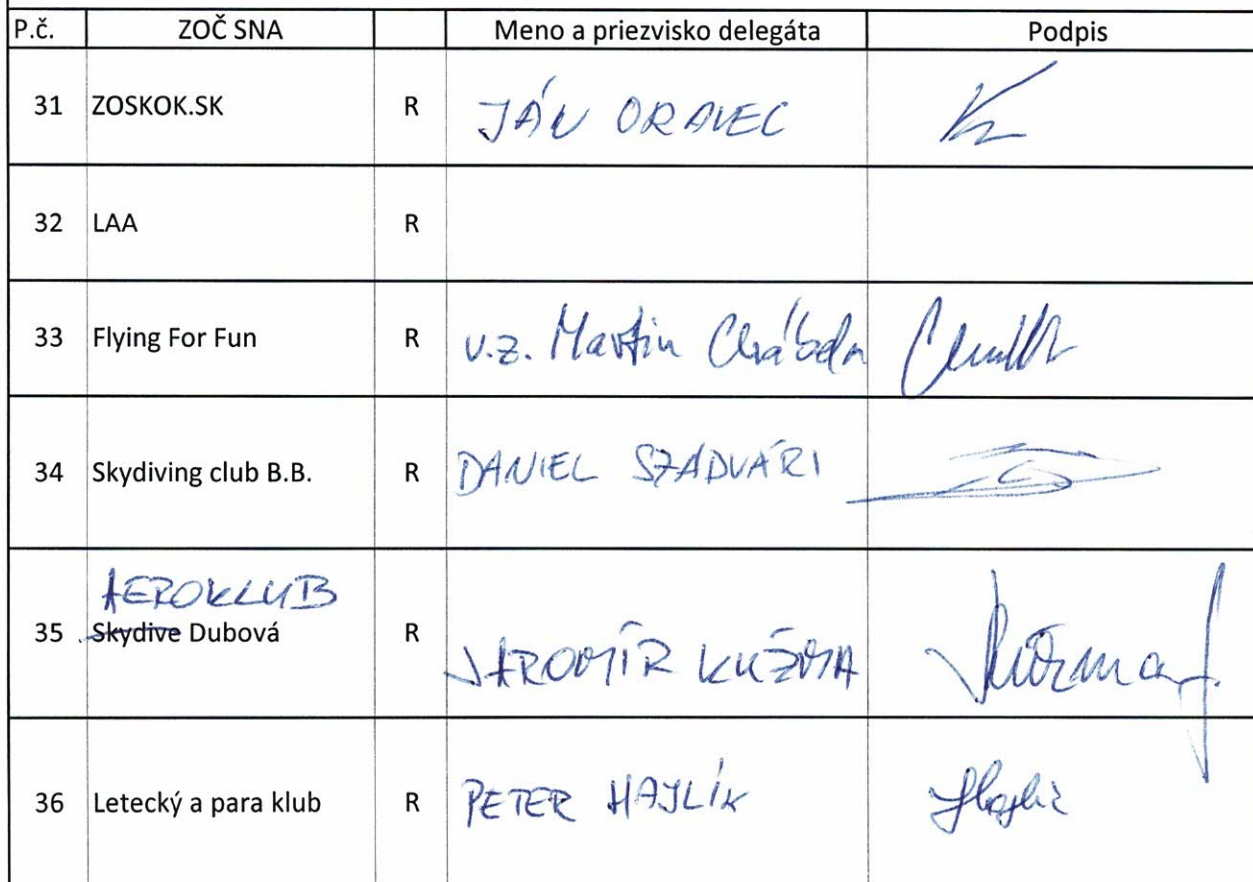 P.č. ZOČ SNA Meno a priezvisko delegáta Podpis
31 ZOSKOK.SK R JÁN ORAVEC
32 LAA R
33 Flying For Fun R v.z. Martin
34 Skydiving club B.B. R DANIEL SZADVÁRI
AEROKLUB
35 Skydive Dubová R JAROMÍR KUŽMA
36 Letecký a para klub R PETER HAJLÍK